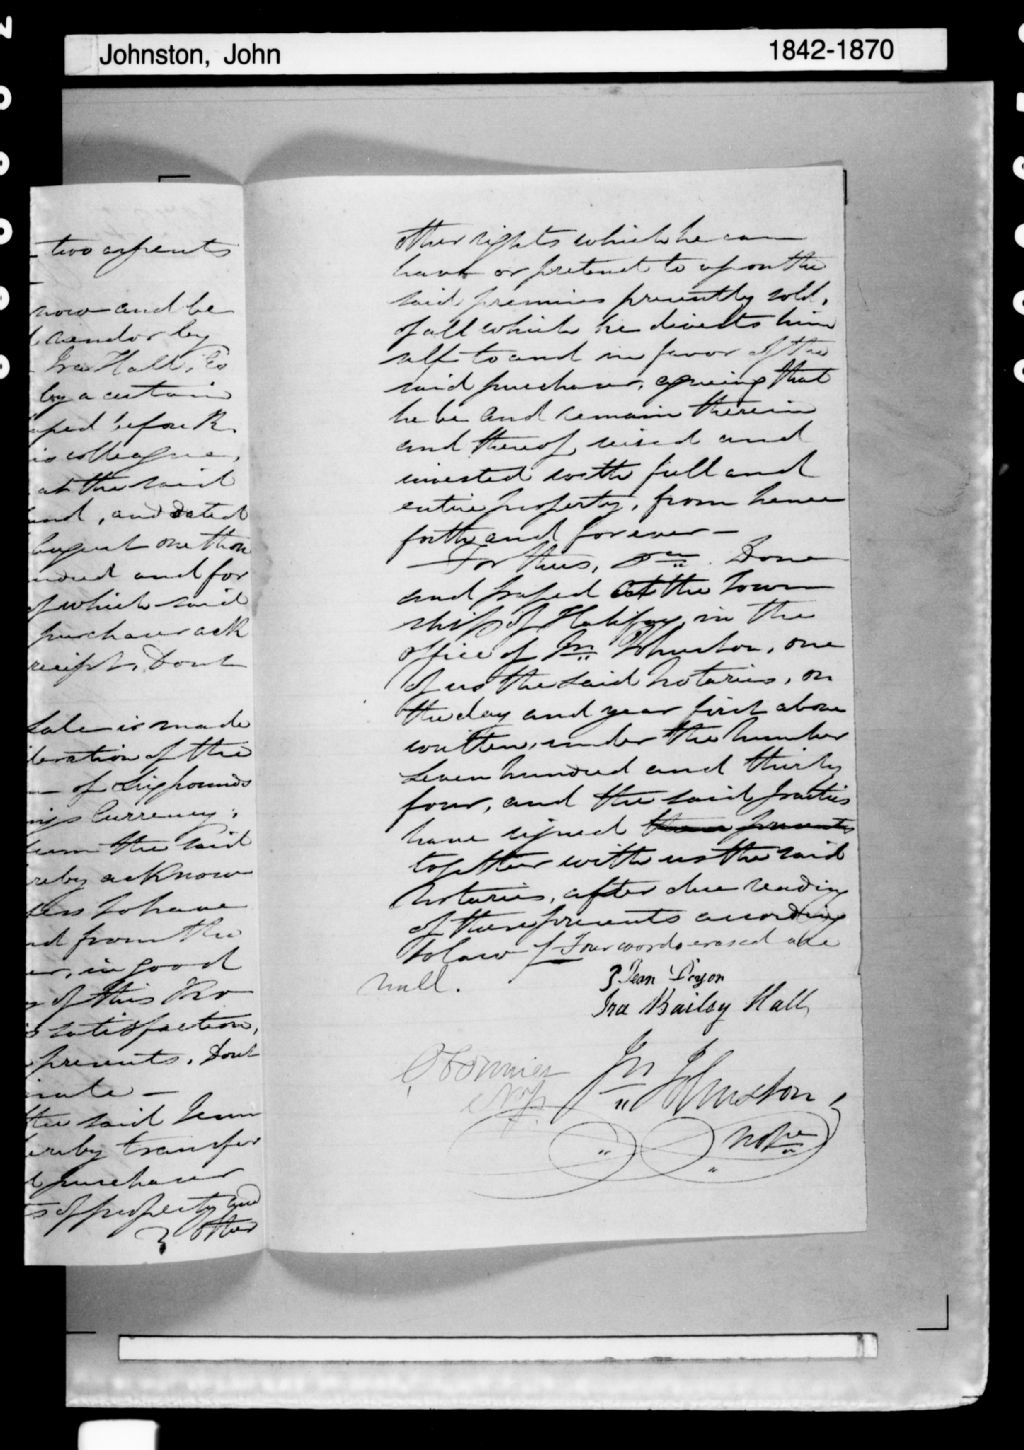 Johnston, John
1842-1870
two arpents
now and be
vendor by
Ira Hall, Es
by a certain
before R.
is colleague,
at the said
and, and dated
August one thou
ndred and for
of which said
purchaser ack
receipt, Dont
Sale is made
deration of the
of Six pounds
ngs Currency;
sum the said
reby acknow
to have
nd from the
er, in good
of this Pro
satisfaction,
presents. Dont
the said Jean
ereby transfer
purchaser
of property and
other
other rights which he can
have or pretend to upon the
said premises presently sold,
of all which he divests him
self to and in favor of the
said purchaser, agreeing that
he be and remain therein
and thereof seised and
invested with full and
entire property, from hence
forth and forever —
For thus, &a. Done
and passed at the Town
ship of Halifax in the
office of Jn Johnston, one
of us the said Notaries, on
the day and year first above
written, under the number
seven hundred and thirty
four, and the said parties
have signed these presents
together with us the said
Notaries, after due reading
of these presents according
to law / Four words erased are
null.
Jean
Ira Bailey Hall
Jn Johnston,
N.P.
Not Pe